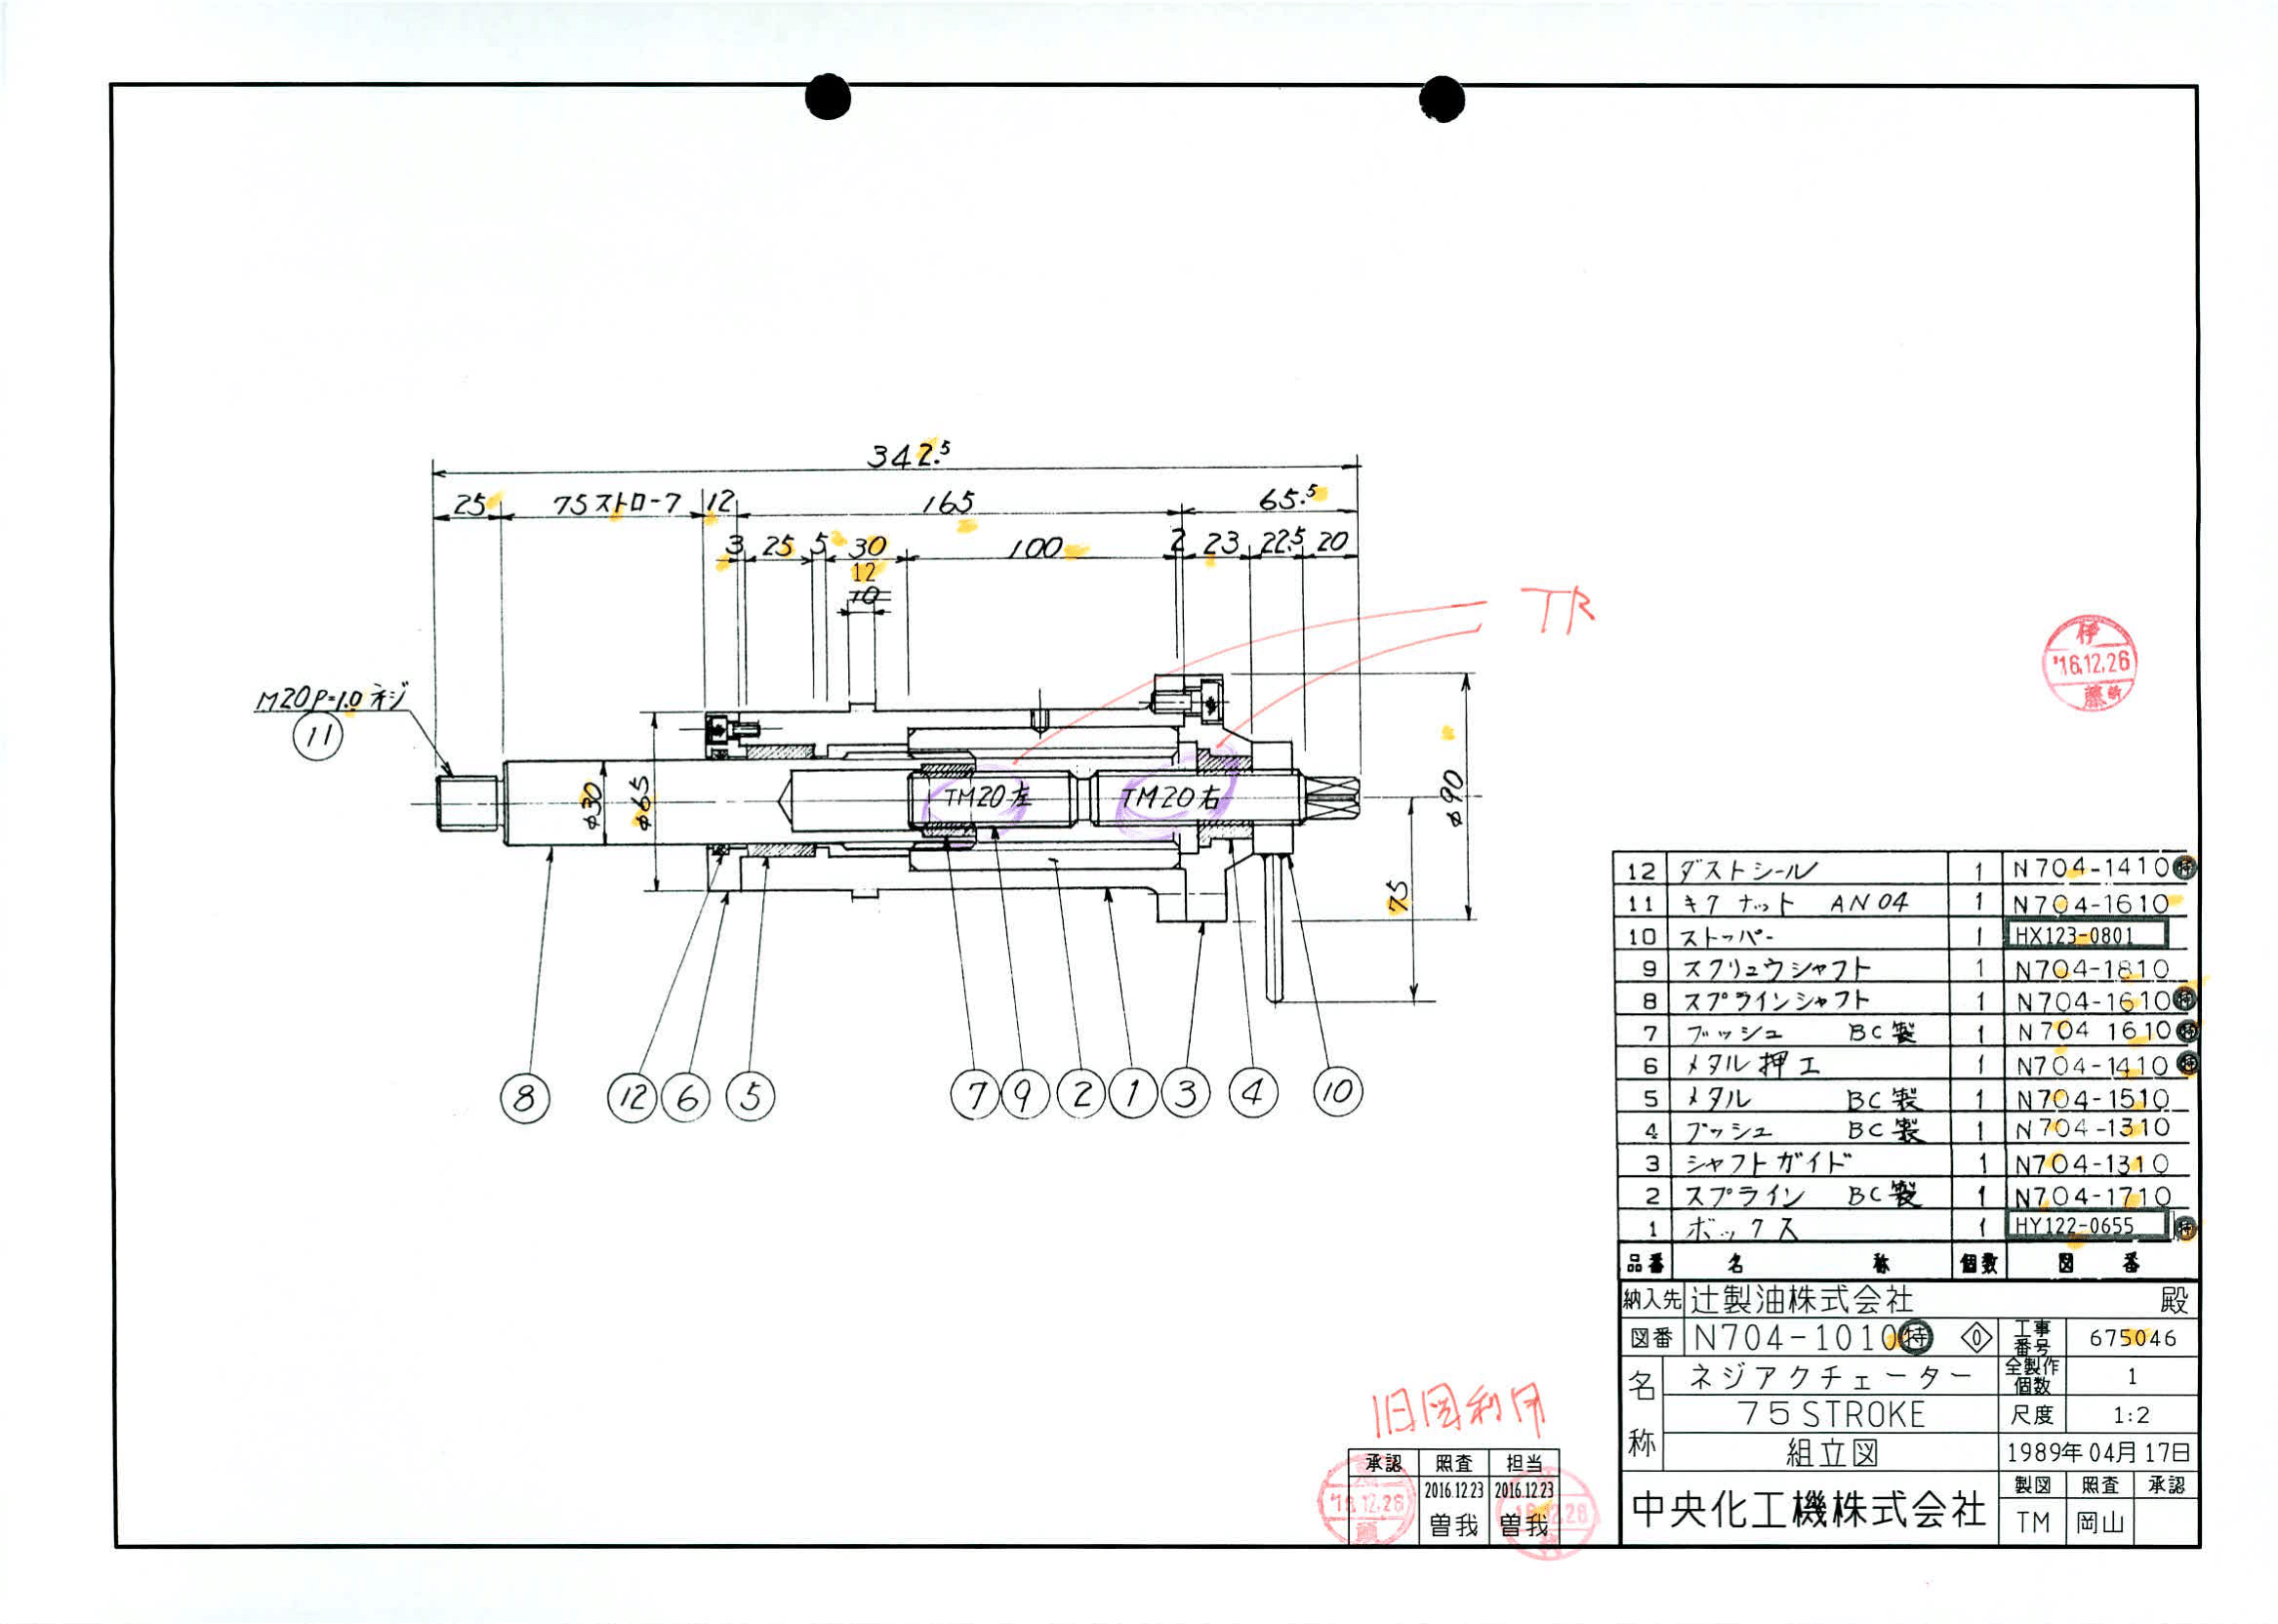 342.5
25 75ストローク 12 165 65.5
3 25 5 30 100 2 23 22.5 20
12
10
TR
M20P=1.0 ネジ
11
伊
'16.12.26
藤
φ30
φ65
TM20左
TM20右
φ90
75
8 12 6 5 7 9 2 1 3 4 10
12 ダストシール 1 N704-1410 特
11 キクナット AN04 1 N704-1610
10 ストッパー 1 HX123-0801
9 スクリュウシャフト 1 N704-1810
8 スプラインシャフト 1 N704-1610 特
7 ブッシュ BC製 1 N704 1610 特
6 メタル押エ 1 N704-1410 特
5 メタル BC製 1 N704-1510
4 ブッシュ BC製 1 N704-1310
3 シャフトガイド 1 N704-1310
2 スプライン BC製 1 N704-1710
1 ボックス 1 HY122-0655 特
品番 名称 個数 図番
納入先 辻製油株式会社 殿
図番 N704-1010 特 0 工事番号 675046
名称 ネジアクチェーター 全製作個数 1
75STROKE 尺度 1:2
組立図 1989年04月17日
中央化工機株式会社 製図 照査 承認
TM 岡山
旧図利用
承認 照査 担当
2016.12.23 2016.12.23
曽我 曽我
'16.12.26